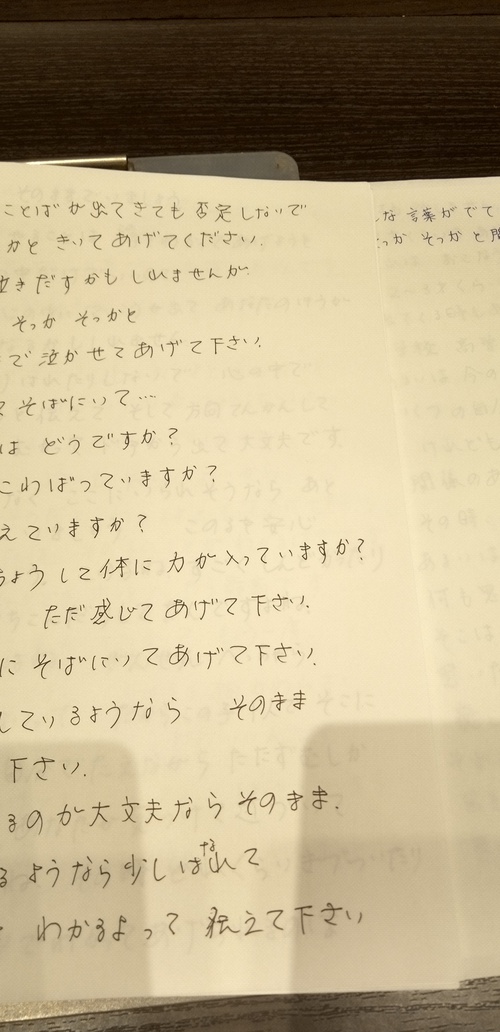 ことばが出てきても否定しないで
かと きいてあげてください.
泣きだすかもしれませんが
そっか そっかと
で泣かせてあげて下さい.
そばにいて…
は どうですか?
こわばっていますか?
えていますか?
ちょうして体に力が入っていますか?
ただ感じてあげて下さい.
に そばにいてあげて下さい.
しているようなら そのまま
下さい.
るのが大丈夫ならそのまま.
るようなら少しはなれて
わかるよって 伝えて下さい
な 言葉がでて
っか そっかと